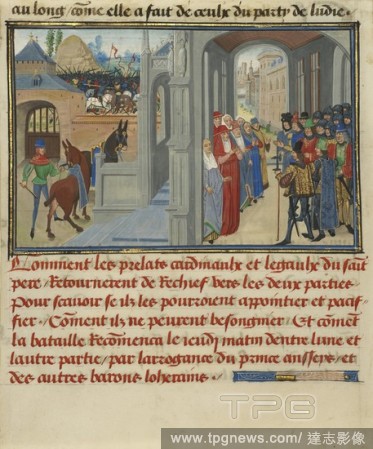 au long, co̅me elle a fait de ceulx du party de ludie.
Comment les prelats cardinaulx et legaulx du saīt
pere, Retournerent de Rechief vers les deux parties
Pour scauoir se ilz les pourroient appointier et pacif
fier. Coment ilz ne peurent besongnier. Et comēt
la bataille Recōmenca le ieudi matin dentre lune et
lautre partie, par larrogance du prince ansseps, et
des autres barons loherains.
TPG
www.tpgnews.com/達志影像